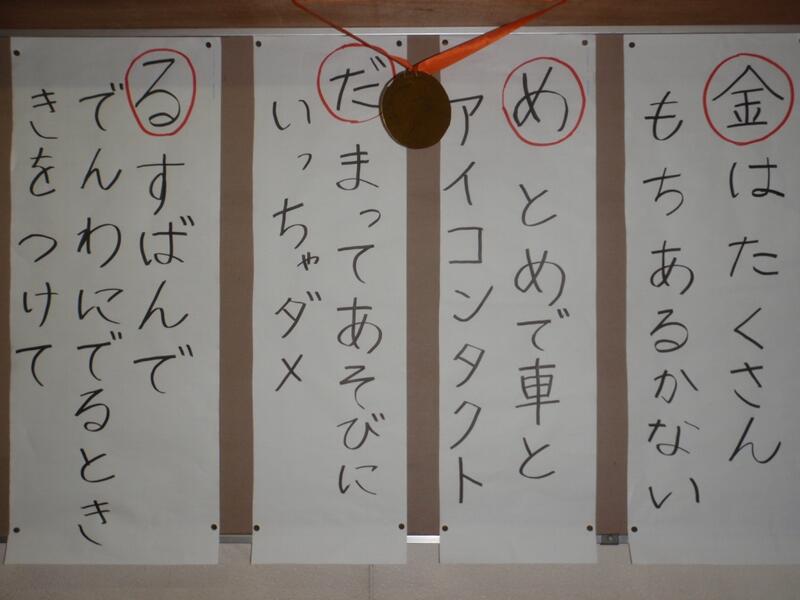 金はたくさん
もちあるかない
めとめで車と
アイコンタクト
だまってあそびに
いっちゃダメ
るすばんで
でんわにでるとき
きをつけて